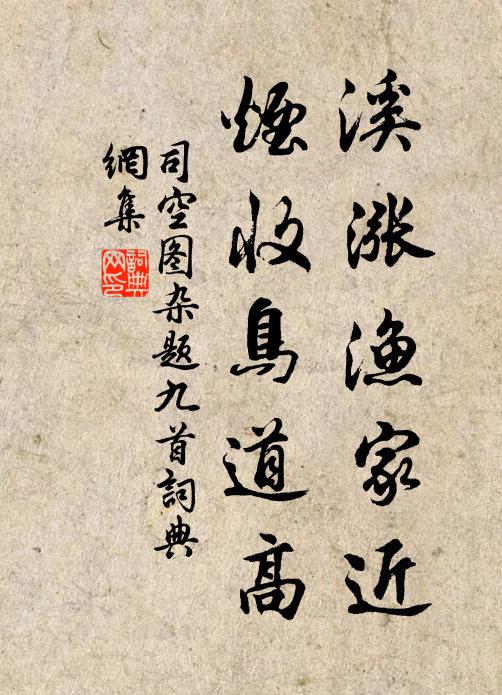 溪漲漁家近
煙收鳥道高
司空图杂题九首詞典
網集
詞典
网印